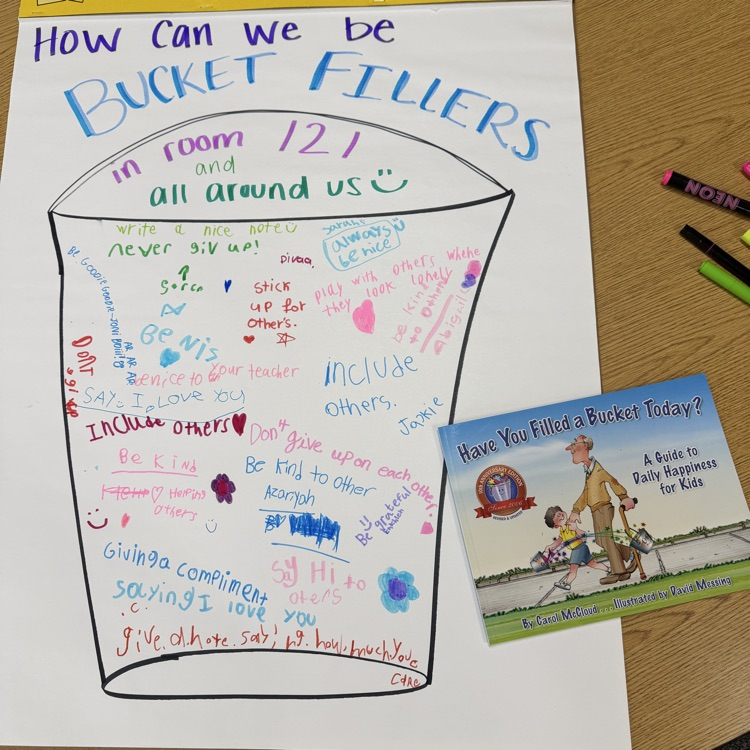 How Can we be
BUCKET FILLERS
in room 121
and
all around us
write a nice note
never giv up!
Sarahs
always
be nice
Divaa.
stick
up for
other's.
play with others whehe
they look lonely
be kind
to others
abigail
Be Nis
be nice to your teacher
Include
others.
Jackie
DONT
SAY: I LOVE YOU
Include others
Don't give up on each other.
Be Kind
Helping
others
Be Kind to other
Azariyah
Be grateful
Giving a compliment
saying I love you
Say Hi to
oters
give. a. note. say, ng. how, much. you. e
Care
NEON
Have You Filled a Bucket Today?
A Guide to
Daily Happiness
for Kids
10TH ANNIVERSARY EDITION
Since 2006
REVISED & UPDATED
By Carol McCloud . . . Illustrated by David Messing